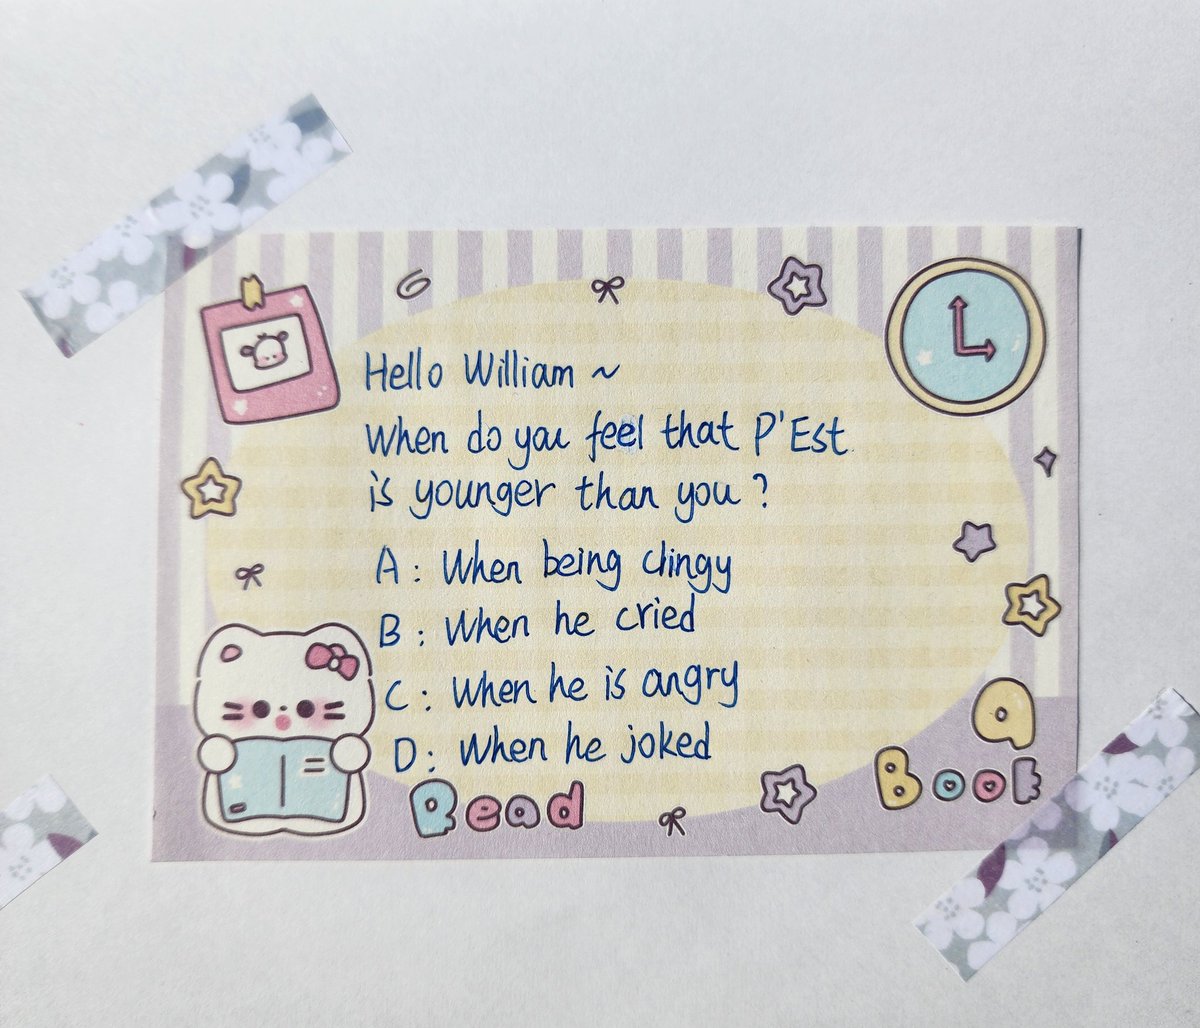 Hello William ~
When do you feel that P'Est
is younger than you ?
A : When being clingy
B : When he cried
C : When he is angry
D : When he joked
Read
A
Book